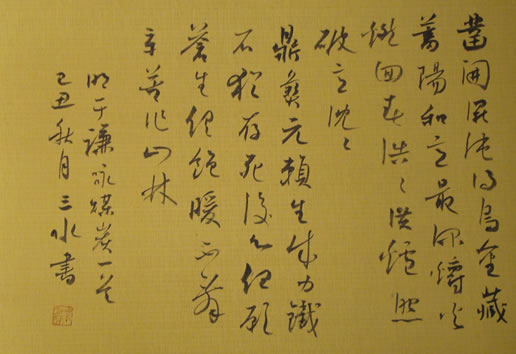 鑿開混沌得烏金藏
蓄陽和意最深爝火
燃回春浩〻洪爐照
破夜沈〻
鼎彝元賴生成力鐵
石猶存死後心但願
蒼生俱飽暖不辭
辛苦出山林
明于謙詠煤炭一首
己丑秋月三水書